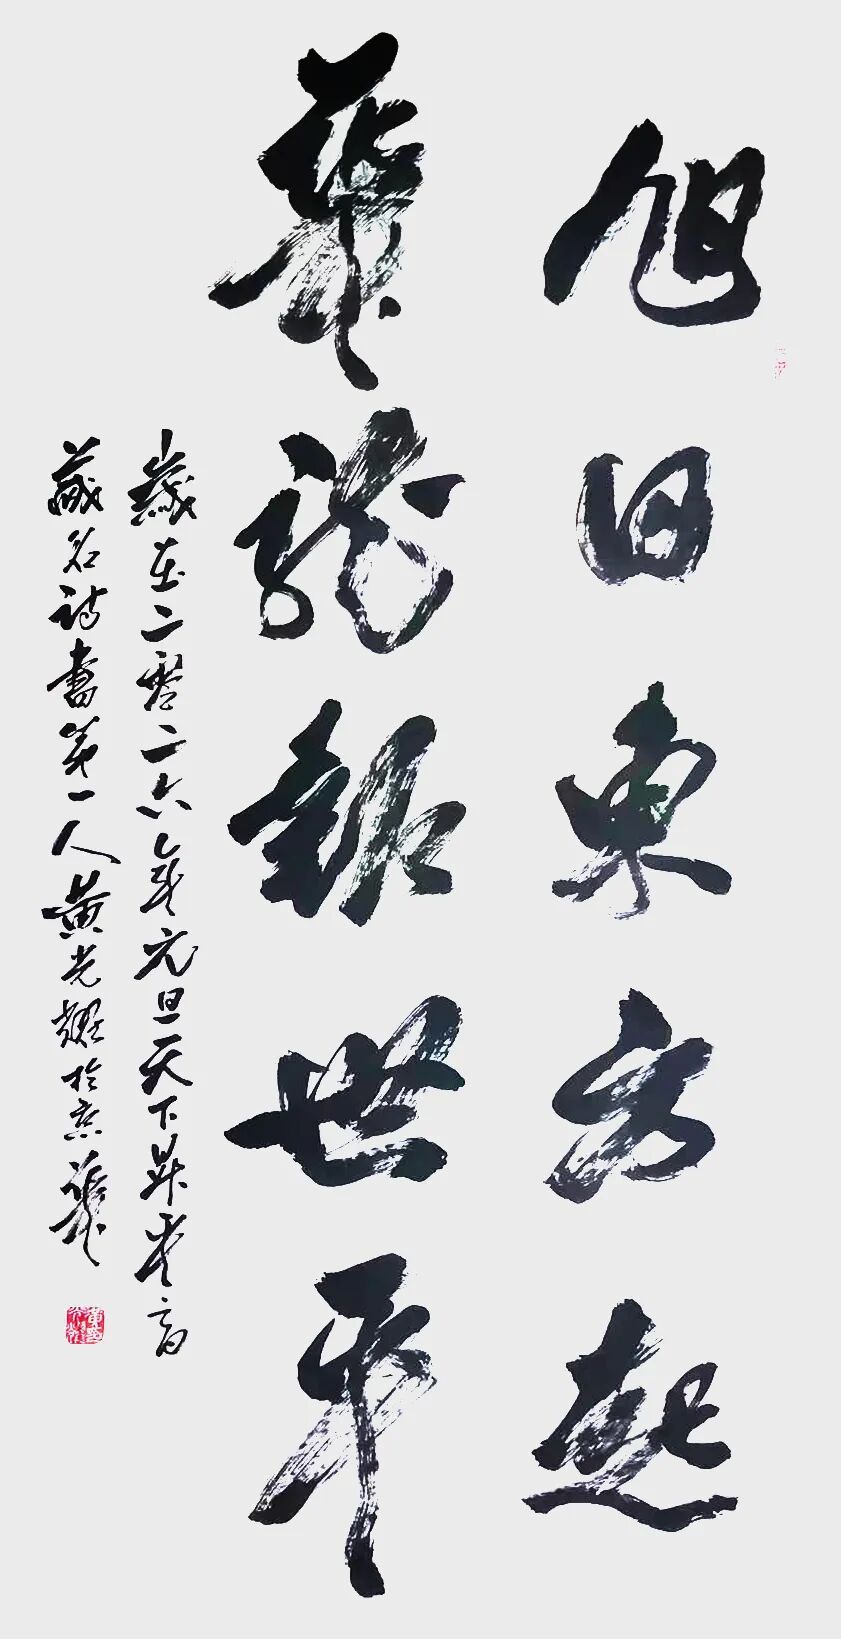 旭日東方起
華龍報世平
歲在二零二六年元旦天下
藏名詩書第一人黃光耀於京華